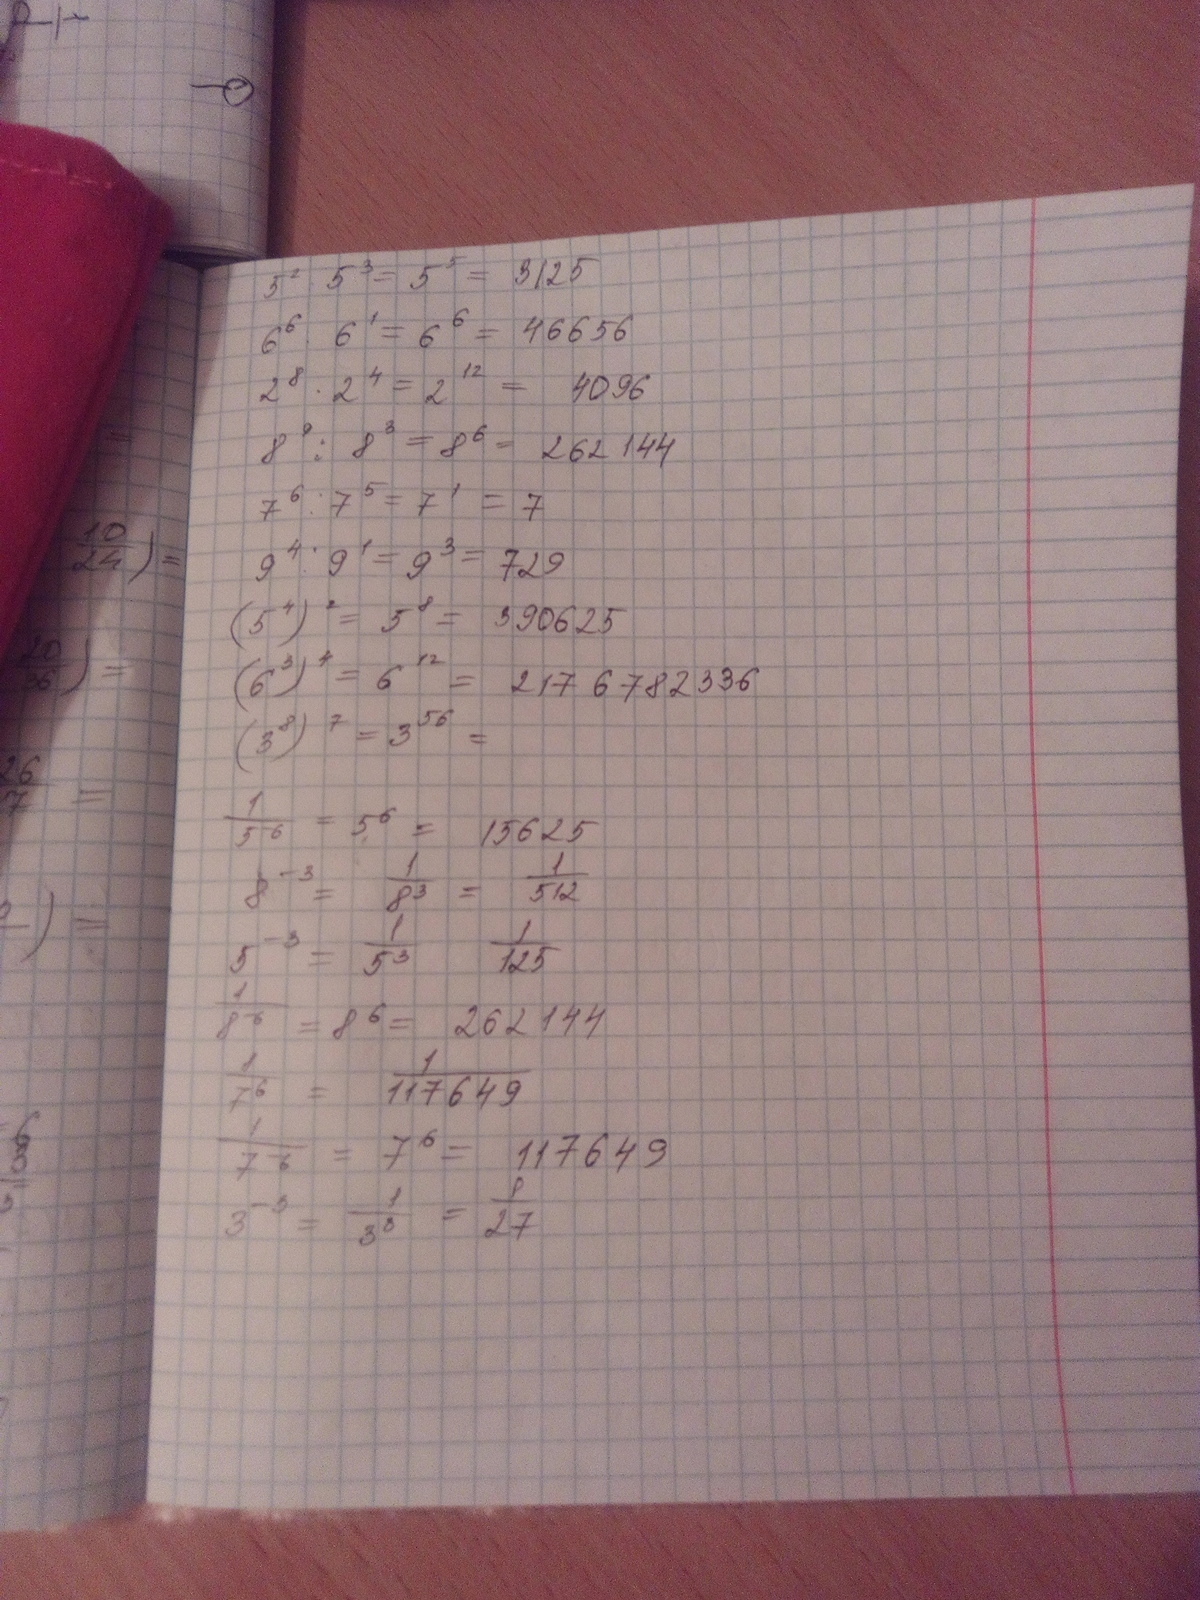 5² · 5³ = 5⁵ = 3125
6⁶ · 6¹ = 6⁶ = 46656
2⁸ · 2⁴ = 2¹² = 4096
8⁹ : 8³ = 8⁶ = 262144
7⁶ : 7⁵ = 7¹ = 7
9⁴ : 9¹ = 9³ = 729
(5⁴)² = 5⁸ = 390625
(6³)⁴ = 6¹² = 2176782336
(3⁸)⁷ = 3⁵⁶ =
1/5⁻⁶ = 5⁶ = 15625
8⁻³ = 1/8³ = 1/512
5⁻³ = 1/5³ 1/125
1/8⁻⁶ = 8⁶ = 262144
1/7⁶ = 1/117649
1/7⁻⁶ = 7⁶ = 117649
3⁻³ = 1/3³ = 1/27
=
10/24) =
20/36) =
26/7 =
) =